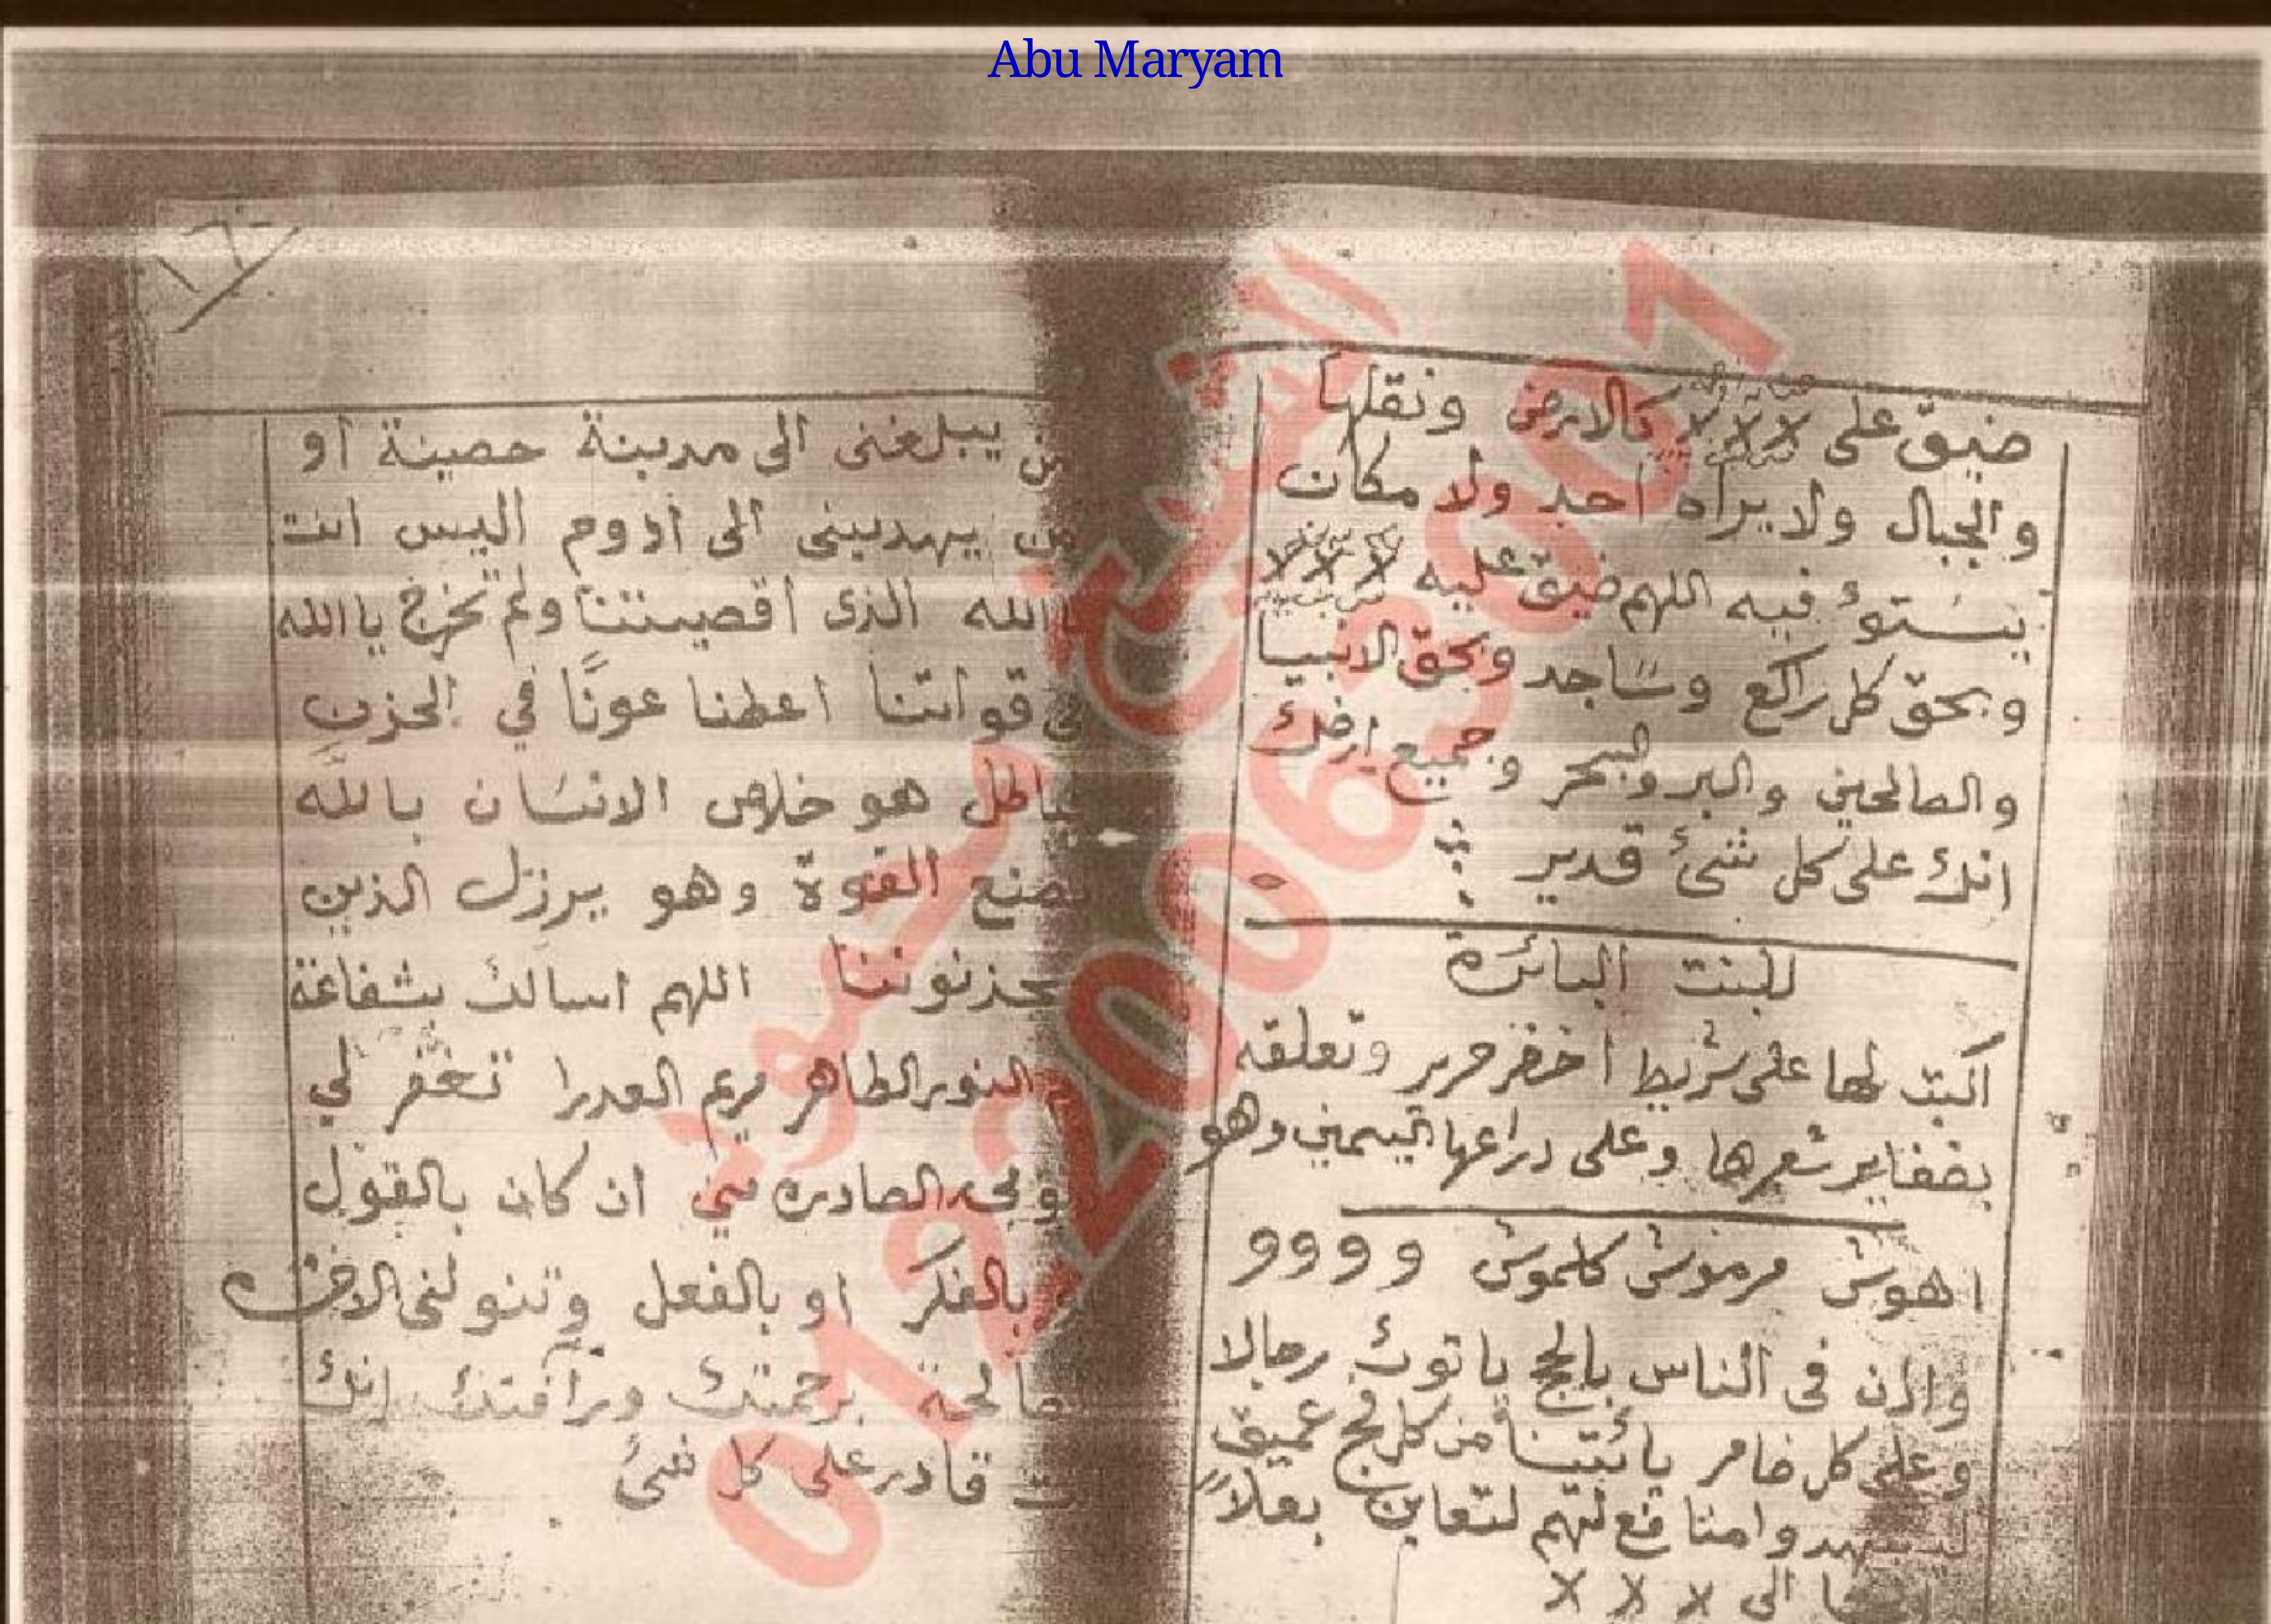 Abu Maryam
ضيق على لا لا لا كالارض ونقلها
والجبال ولا يراه احد ولا مكان
يستوؤ فيه اللهم ضيق عليه لا لا لا
وبحق كل راكع وساجد وبحق الانبيا
والصالحين والبر والبحر وجميع ارضك
انك على كل شئ قدير
للبنت البائرة
اكتب لها على شريط اخضر حرير وتعلقه
بضفاير شعرها وعلى دراعها اليمين وهو
اهوش مرموش كلموش وووو
واذن فى الناس بالحج ياتوك رجالا
وعلى كل ضامر يأتينا من كل فج عميق
ليشهدوا منافع لهم بعلاً
الى لا لا لا
١٦
من يبلغنى الى مدينة حصينة او
من يهدينى الى ادوم اليس انت
الله الذى اقصيتنا ولم تخرج يا الله
قواتنا اعطنا عونًا في الحزن
باطل هو خلاص الانسان بالله
نصنع القوة وهو يرزل الذين
يحزنوننا اللهم اسالك بشفاعة
النور الطاهر مريم العدرا تغفر لي
الصادره مني ان كان بالقول
بالفكر او بالفعل وتنولنى الاخره
صالحة برحمتك ورآفتك انك
قادر على كل شئ
الشيخ حمود
01220063091